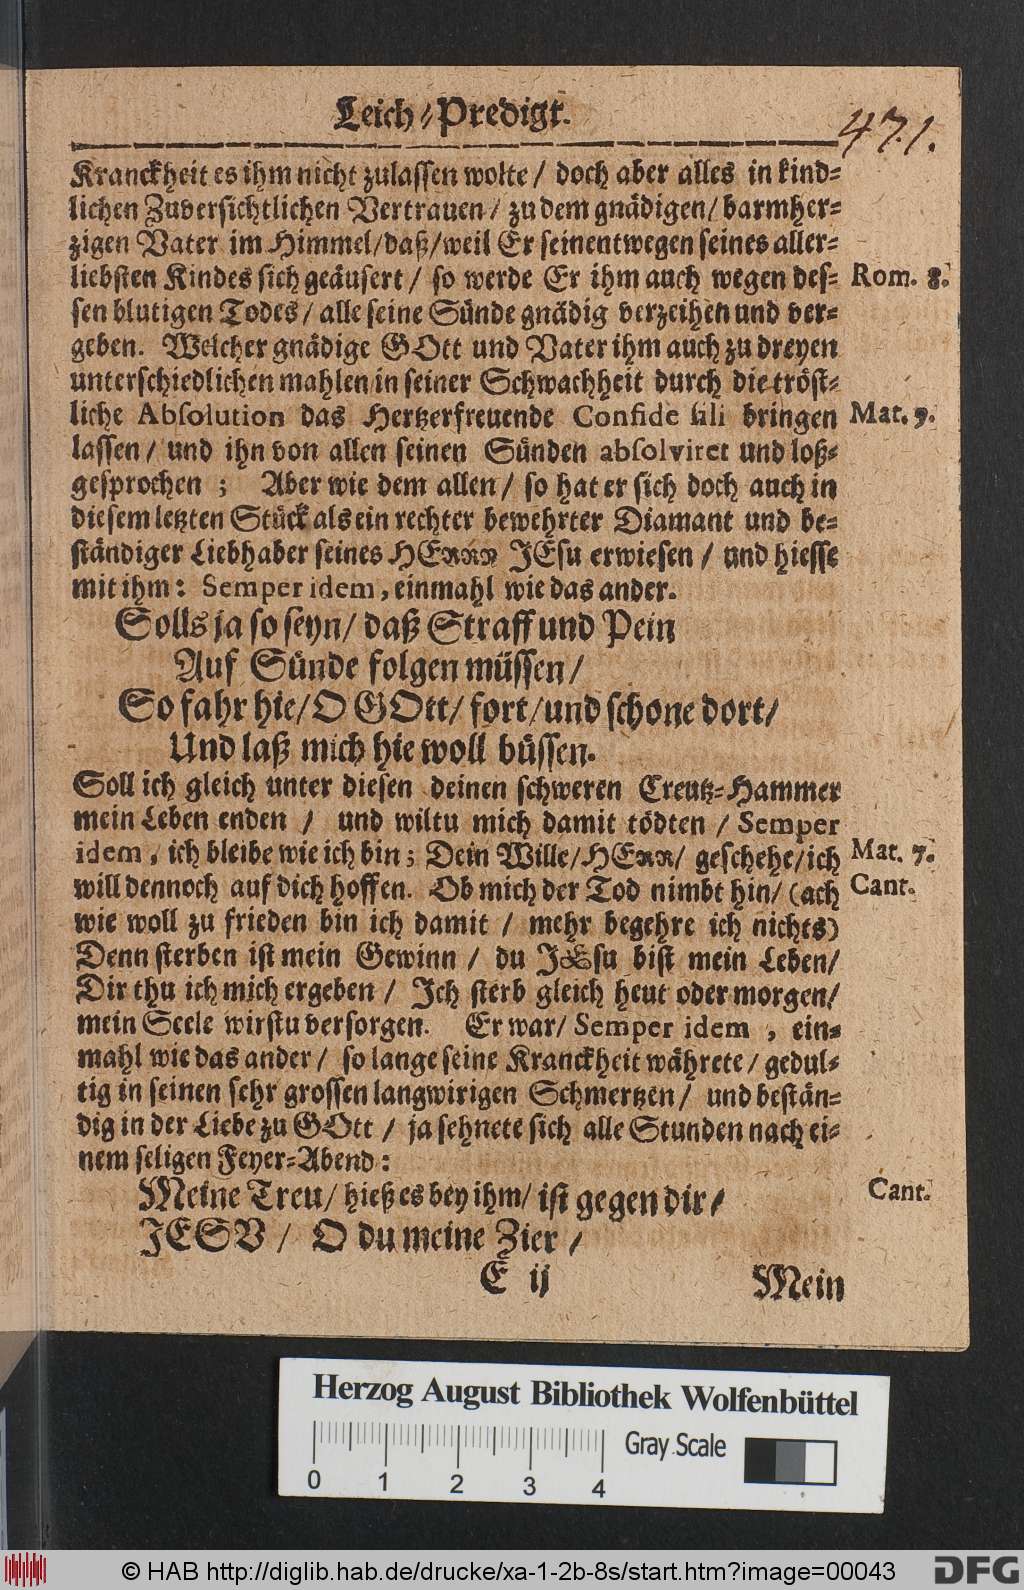 Leich-Predigt.
471.
Kranckheit es ihm nicht zulassen wolte / doch aber alles in kind-
lichen Zuversichtlichen Vertrauen / zu dem gnädigen / barmher-
zigen Vater im Himmel / daß / weil Er seinentwegen seines aller-
liebsten Kindes sich geäusert / so werde Er ihm auch wegen des-
Rom. 8.
sen blutigen Todes / alle seine Sünde gnädig verzeihen und ver-
geben. Welcher gnädige GOtt und Vater ihm auch zu dreyen
unterschiedlichen mahlen / in seiner Schwachheit durch die tröst-
liche Absolution das Hertzerfreuende Confide fili bringen
Mat. 9.
lassen / und ihn von allen seinen Sünden absolviret und loß-
gesprochen ; Aber wie dem allen / so hat er sich doch auch in
diesem letzten Stück als ein rechter bewehrter Diamant und be-
ständiger Liebhaber seines HErrn JEsu erwiesen / und hiesse
mit ihm: Semper idem, einmahl wie das ander.
Solls ja so seyn / daß Straff und Pein
Auf Sünde folgen müssen /
So fahr hie / O GOtt / fort / und schone dort /
Und laß mich hie woll büssen.
Soll ich gleich unter diesen deinen schweren Creutz-Hammer
mein Leben enden / und wiltu mich damit tödten / Semper
idem, ich bleibe wie ich bin; Dein Wille / HErr / geschehe / ich
Mat. 7.
will dennoch auf dich hoffen. Ob mich der Tod nimbt hin / (ach
Cant.
wie woll zu frieden bin ich damit / mehr begehre ich nichts)
Denn sterben ist mein Gewinn / du JEsu bist mein Leben /
Dir thu ich mich ergeben / Ich sterb gleich heut oder morgen /
mein Seele wirstu versorgen. Er war / Semper idem , ein-
mahl wie das ander / so lange seine Kranckheit währete / gedul-
tig in seinen sehr grossen langwirigen Schmertzen / und bestän-
dig in der Liebe zu GOtt / ja sehnete sich alle Stunden nach ei-
nem seligen Feyer-Abend:
Meine Treu / hieß es bey ihm / ist gegen dir /
Cant.
JESU / O du meine Zier /
E ij
Mein
Herzog August Bibliothek Wolfenbüttel
Gray Scale
0 1 2 3 4
© HAB http://diglib.hab.de/drucke/xa-1-2b-8s/start.htm?image=00043
DFG